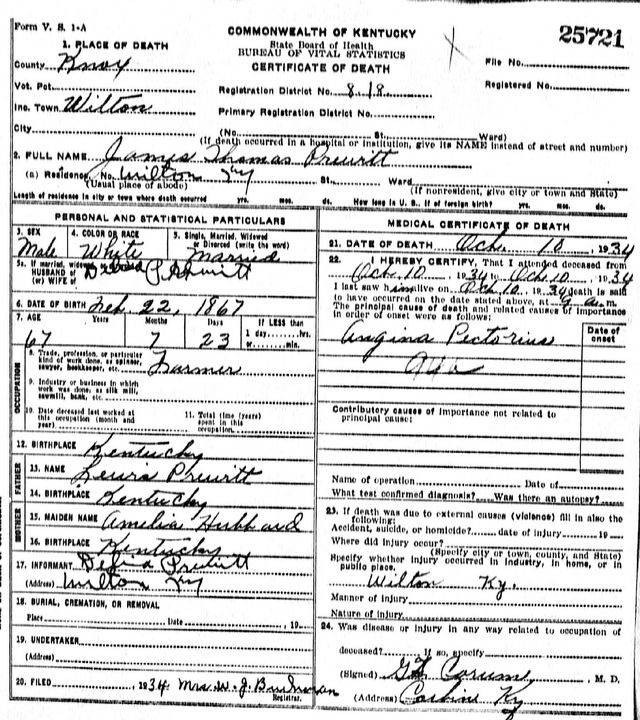 Form V. S. 1-A
COMMONWEALTH OF KENTUCKY
State Board of Health
BUREAU OF VITAL STATISTICS
CERTIFICATE OF DEATH
25721
1. PLACE OF DEATH
County Knox
Vot. Pct.
Inc. Town Wilton
City
Registration District No. 818
Primary Registration District No.
File No.
Registered No.
(No. St. Ward)
(If death occurred in a hospital or institution, give its NAME instead of street and number)
2. FULL NAME James Thomas Prewitt
(a) Residence, No. Wilton Ky St. Ward
(Usual place of abode) (If nonresident, give city or town and State)
Length of residence in city or town where death occurred yrs. mos. ds. How long in U. S., if of foreign birth? yrs. mos. ds.
PERSONAL AND STATISTICAL PARTICULARS
3. SEX Male
4. COLOR OR RACE White
5. Single, Married, Widowed or Divorced (write the word) Married
5a. If married, widowed
HUSBAND of
(or) WIFE of Prewitt
6. DATE OF BIRTH Feb. 22, 1867
7. AGE Years Months Days If LESS than
67 7 23 1 day hrs.
or min.
OCCUPATION
8. Trade, profession, or particular kind of work done, as spinner, sawyer, bookkeeper, etc. Farmer
9. Industry or business in which work was done, as silk mill, sawmill, bank, etc.
10. Date deceased last worked at this occupation (month and year)
11. Total time (years) spent in this occupation
12. BIRTHPLACE Kentucky
FATHER
13. NAME Lewis Prewitt
14. BIRTHPLACE Kentucky
MOTHER
15. MAIDEN NAME Amelia Hubbard
16. BIRTHPLACE Kentucky
17. INFORMANT Prewitt
(Address) Wilton Ky
18. BURIAL, CREMATION, OR REMOVAL
Place Date , 19
19. UNDERTAKER
(Address)
20. FILED , 1934 Mrs. W. J. Buchanan
Registrar.
MEDICAL CERTIFICATE OF DEATH
21. DATE OF DEATH Oct. 10, 1934
22. I HEREBY CERTIFY, That I attended deceased from
Oct 10, 1934 to Oct 10, 1934
I last saw him alive on Oct 10, 1934 death is said
to have occurred on the date stated above, at 9 a.m.
The principal cause of death and related causes of importance
in order of onset were as follows:
Date of onset
Angina Pectorius
Contributory causes of importance not related to
principal cause:
Name of operation Date of
What test confirmed diagnosis? Was there an autopsy?
23. If death was due to external causes (violence) fill in also the
following:
Accident, suicide, or homicide? date of injury 19
Where did injury occur?
(Specify city or town, county, and State)
Specify whether injury occurred in industry, in home, or in
public place.
Wilton Ky.
Manner of injury
Nature of injury
24. Was disease or injury in any way related to occupation of
deceased? If so, specify
(Signed) , M. D.
(Address) Corbin Ky